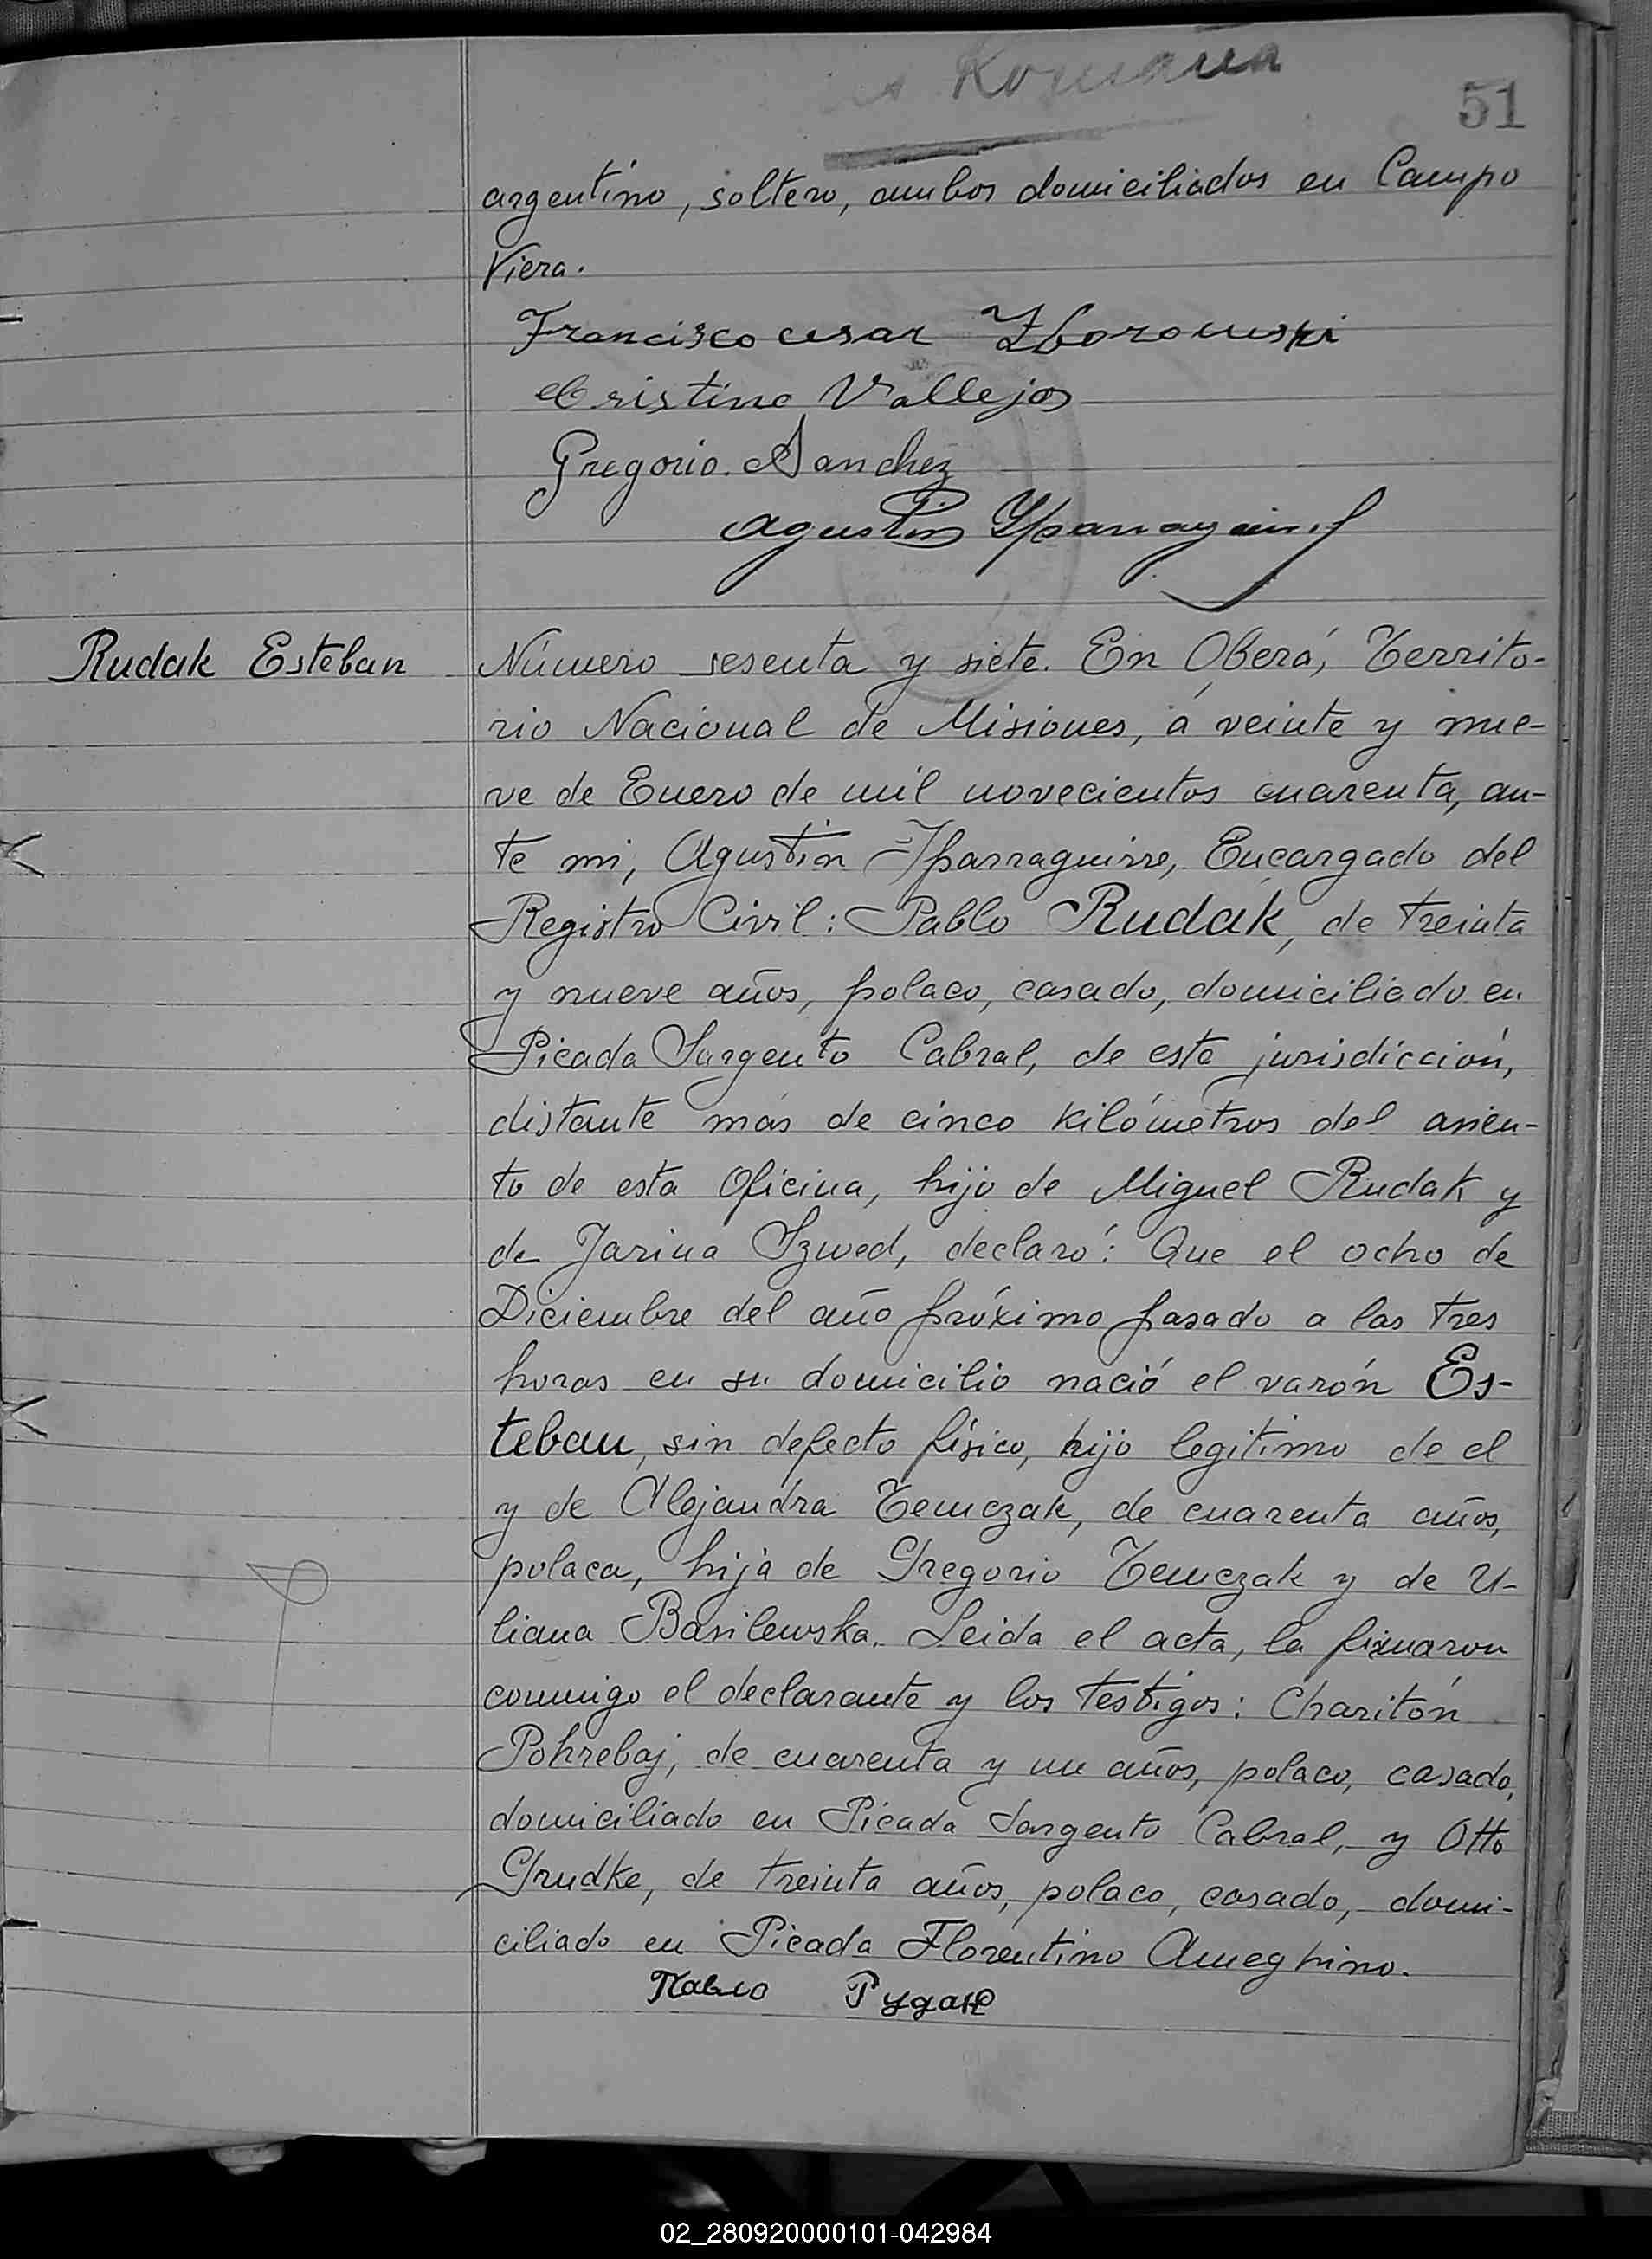 Romaña
51
argentino, soltero, ambos domiciliados en Campo
Viera.
Francisco cesar Zborowski
Cristino Vallejos
Gregorio Sanchez
Agustin Yparraguirre
Rudak Esteban
Número sesenta y siete. En Oberá, Territo-
rio Nacional de Misiones, á veinte y nue-
ve de Enero de mil novecientos cuarenta, an-
te mi, Agustín Yparraguirre, Encargado del
Registro Civil: Pablo Rudak, de treinta
y nueve años, polaco, casado, domiciliado en
Picada Sargento Cabral, de esta jurisdicción,
distante más de cinco kilómetros del asien-
to de esta Oficina, hijo de Miguel Rudak y
de Jarina Szwed, declaró: Que el ocho de
Diciembre del año próximo pasado a las tres
horas en su domicilio nació el varón Es-
teban, sin defecto físico, hijo legitimo de el
y de Alejandra Temczak, de cuarenta años,
polaca, hija de Gregorio Temczak y de U-
liana Basilewska. Leida el acta, la firmaron
conmigo el declarante y los testigos: Charitón
Pohrebaj, de cuarenta y un años, polaco, casado,
domiciliado en Picada Sargento Cabral, y Otto
Grudke, de treinta años, polaco, casado, domi-
ciliado en Picada Florentino Ameghino.
Павло Рудак
02_280920000101-042984